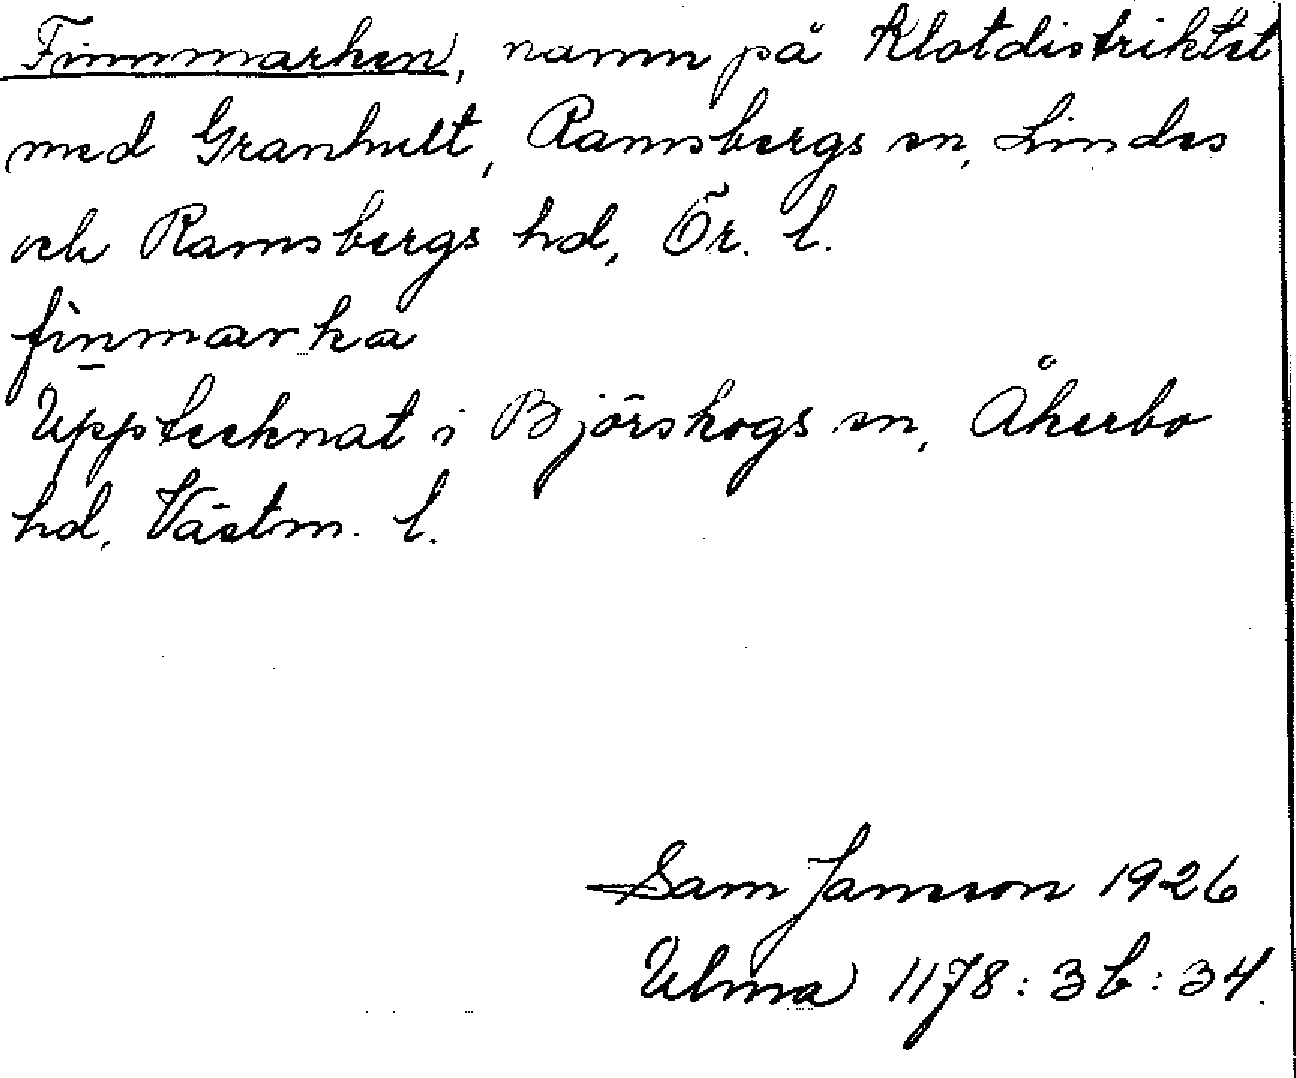 Finnmarken, namn på Klotdistriktet
med Granhult, Ramsbergs sn, Lindes
och Ramsbergs hd, Ör. l.
fìnmarka
Upptecknat i Björskogs sn, Åkerbo
hd, Västm. l.
Sam Jansson 1926
Ulma 1178:3b:34.